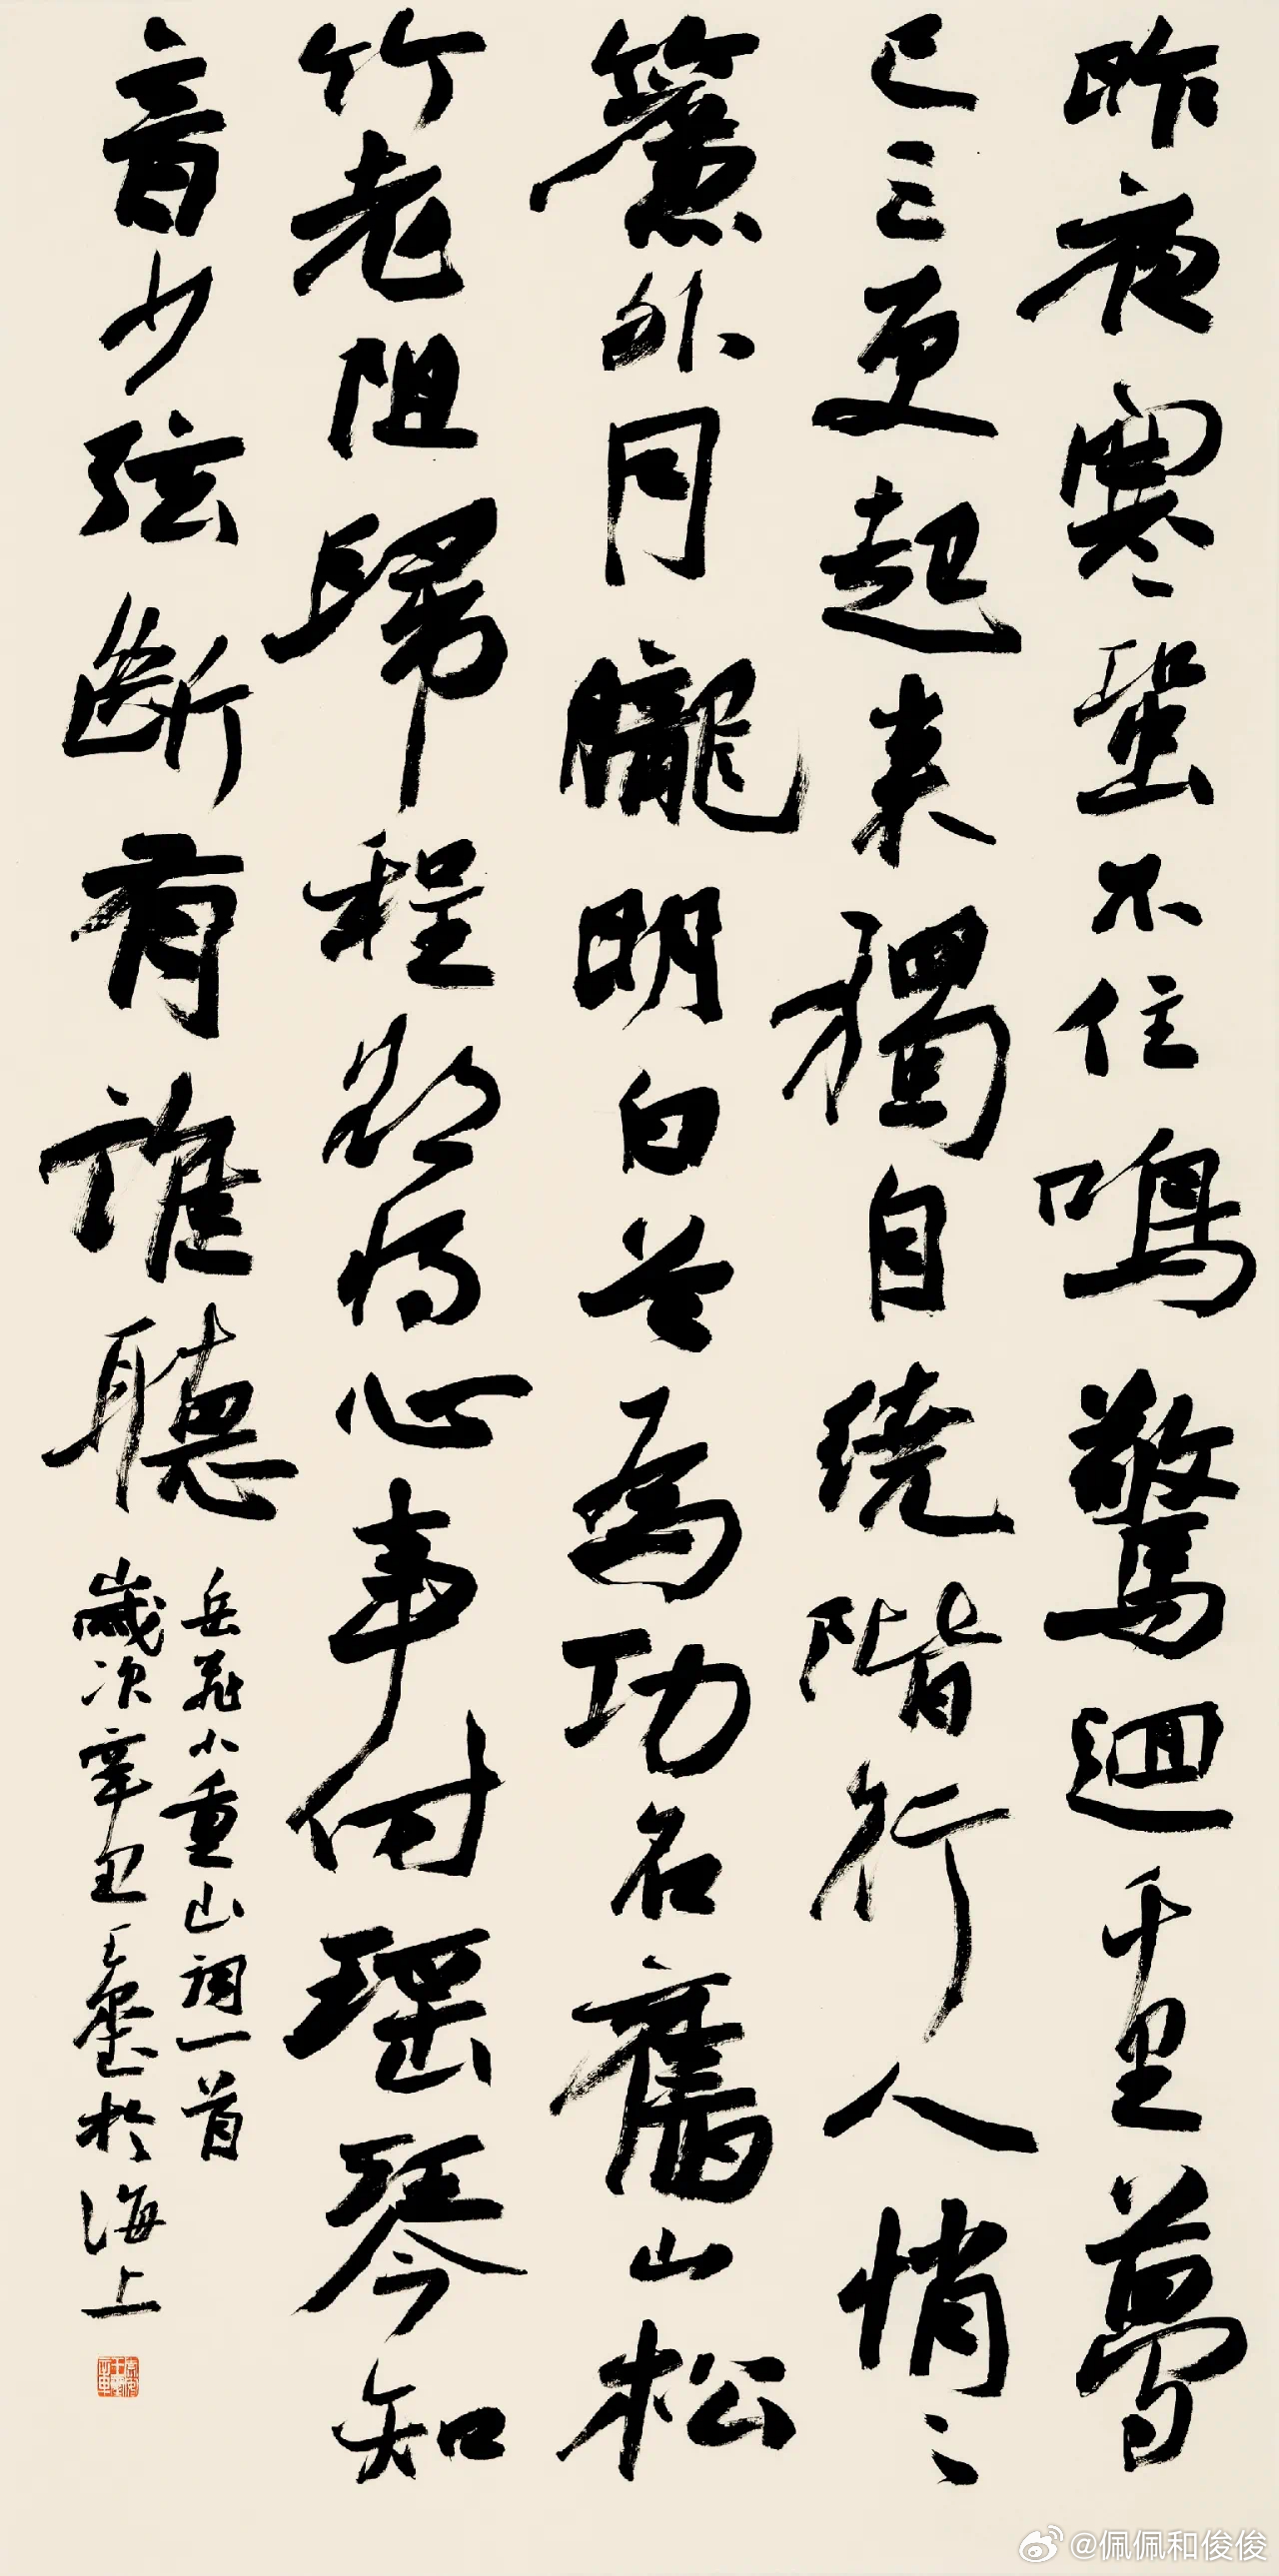 昨夜寒蛩不住鳴驚迴千里夢
已三更起来獨自繞階行人悄〻
簾外月朧明白首為功名舊山松
竹老阻歸程欲將心事付瑶琴知
音少弦斷有誰聽
岳飛小重山詞一首
歲次辛丑王於海上
@佩佩和俊俊